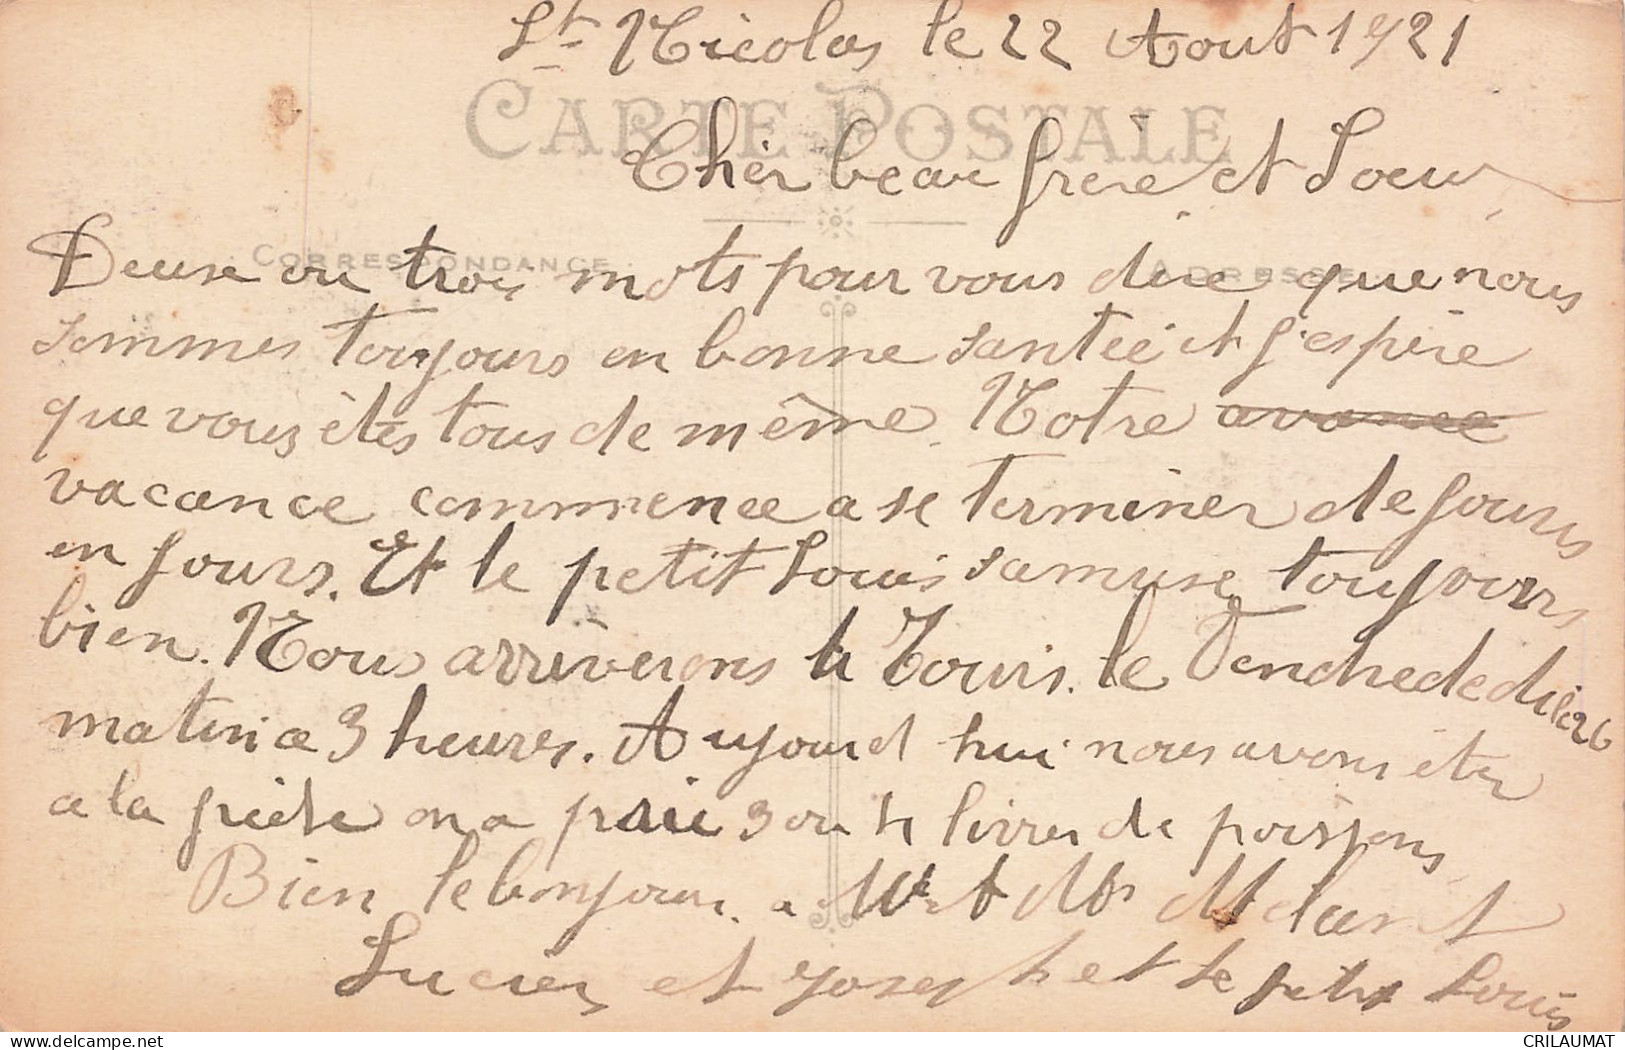 St Nicolas le 22 Aout 1921
CARTE POSTALE
Chèr beau frère et Soeur
CORRESPONDANCE
ADRESSE
Deuse ou trois mots pour vous dire que nous
sommes toujours en bonne santée et j'espère
que vous êtes tous de même. Notre avance
vacance commence a se terminer de jours
en jours. Et le petit Louis samuse toujours
bien. Nous arrivérons le Touis. le Vendrededi le 26
matin a 3 heures. Aujourd hui nous avons étez
a la pèche on a prie 3 ou 4 livres de poissons
Bien le bonjour a Mr et Mm
Lucien et Joseph et le petit Louis
delcampe.net
CRILAUMAT